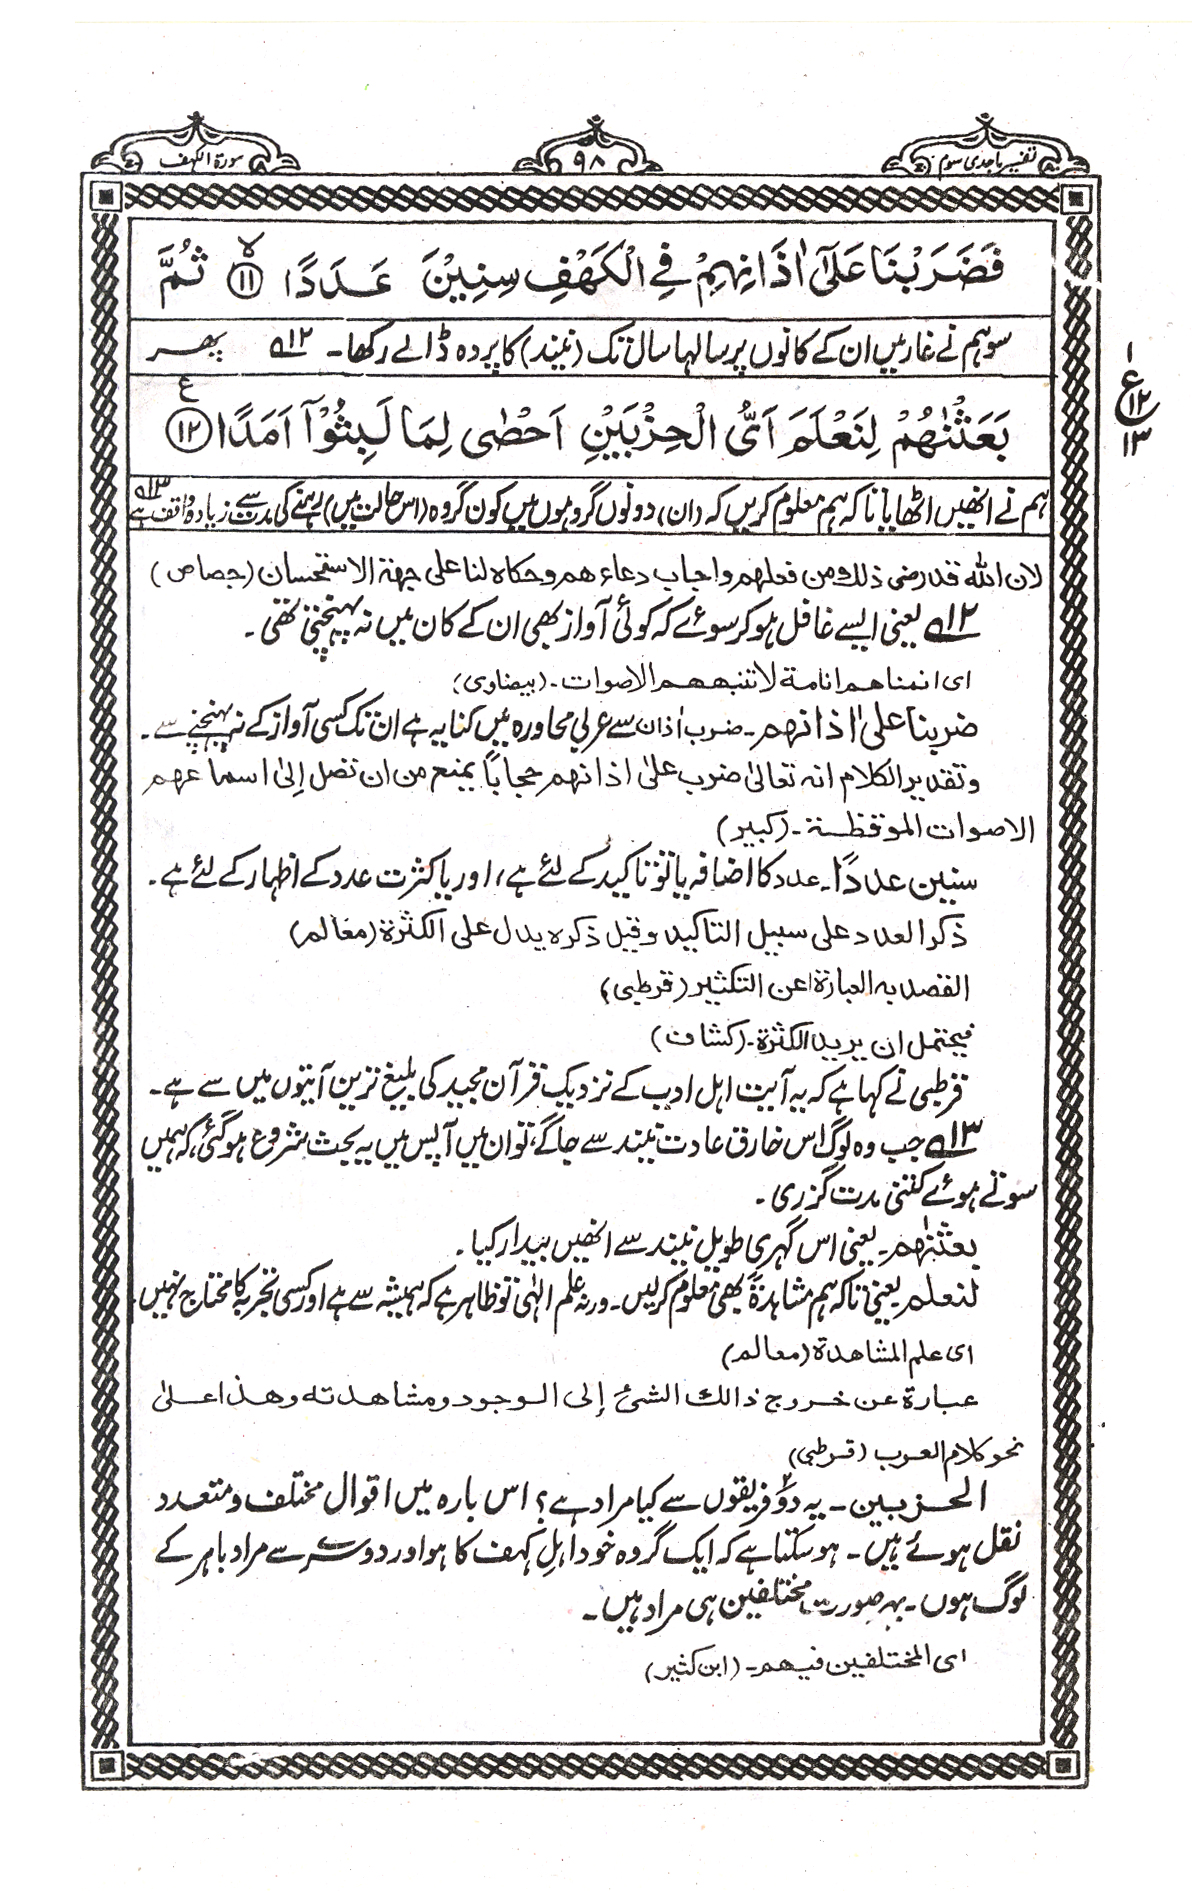 تفسیر ماجدی سوم
۹۸
سورۃ الکهف
فَضَرَبْنَا عَلَىٰٓ اٰذَانِهِمْ فِى الْكَهْفِ سِنِيْنَ عَدَدًا ﴿۱۱﴾ۙ ثُمَّ
سو ہم نے غار میں ان کے کانوں پر سالہا سال تک (نیند) کا پردہ ڈالے رکھا۔ ۱۲؎ پھر
بَعَثْنٰهُمْ لِنَعْلَمَ اَىُّ الْحِزْبَيْنِ اَحْصٰى لِمَا لَبِثُوْٓا اَمَدًا ﴿۱۲﴾ ع
۱
ع ۱۲
۱۳
ہم نے انھیں اٹھایا تاکہ ہم معلوم کریں کہ (ان) دونوں گروہوں میں کون گروہ (اس حالت میں) رہنے کی مدت سے زیادہ واقف ہے ۱۳؎
لان اللہ قد رضی ذلک ومن فعلهم واجاب دعاءهم وحکاه لنا علی جهة الاستحسان (جصاص)
۱۲؎ یعنی ایسے غافل ہو کر سوئے کہ کوئی آواز بھی ان کے کان میں نہ پہنچتی تھی۔
ای انمناهم انامة لا تنبههم الاصوات۔ (بیضاوی)
ضربنا علیٰ اٰذانهم۔ ضرب اٰذان سے عربی محاورہ میں کنایہ ہے ان تک کسی آواز کے نہ پہنچنے سے۔
وتقدیر الکلام انہ تعالیٰ ضرب علیٰ اٰذانهم حجابًا یمنع من ان تصل اِلیٰ اسماعهم
الاصوات الموقظة۔ (کبیر)
سنین عددًا۔ عدد کا اضافہ یا تو تاکید کے لئے ہے، اور یا کثرت عدد کے اظہار کے لئے ہے۔
ذکر العدد علی سبیل التاکید وقیل ذکره یدل علی الکثرة (معالم)
القصد به العبارة عن التکثیر (قرطبی)
فیحتمل ان یرید الکثرة۔ (کشاف)
قرطبی نے کہا ہے کہ یہ آیت اہل ادب کے نزدیک قرآن مجید کی بلیغ ترین آیتوں میں سے ہے۔
۱۳؎ جب وہ لوگ اس خارق عادت نیند سے جاگے، تو ان میں آپس میں یہ بحث شروع ہو گئی، کہ ہمیں
سوتے ہوئے کتنی مدت گزری۔
بعثنٰهم۔ یعنی اس گہری طویل نیند سے انھیں بیدار کیا۔
لنعلم یعنی تاکہ ہم مشاہدۃً بھی معلوم کر لیں۔ ورنہ علم الٰہی تو ظاہر ہے کہ ہمیشہ سے ہے اور کسی تجربہ کا محتاج نہیں۔
ای علم المشاهدة (معالم)
عبارة عن خروج ذالك الشئ إلی الوجود ومشاهدته وهذا علیٰ
نحو کلام العرب (قرطبی)
الحزبین۔ یہ دو۲ فریقوں سے کیا مراد ہے؟ اس بارہ میں اقوال مختلف و متعدد
نقل ہوئے ہیں۔ ہو سکتا ہے کہ ایک گروہ خود اہل کہف کا ہو اور دوسرے سے مراد باہر کے
لوگ ہوں۔ بہر صورت مختلفین ہی مراد ہیں۔
ای المختلفین فیهم۔ (ابن کثیر)